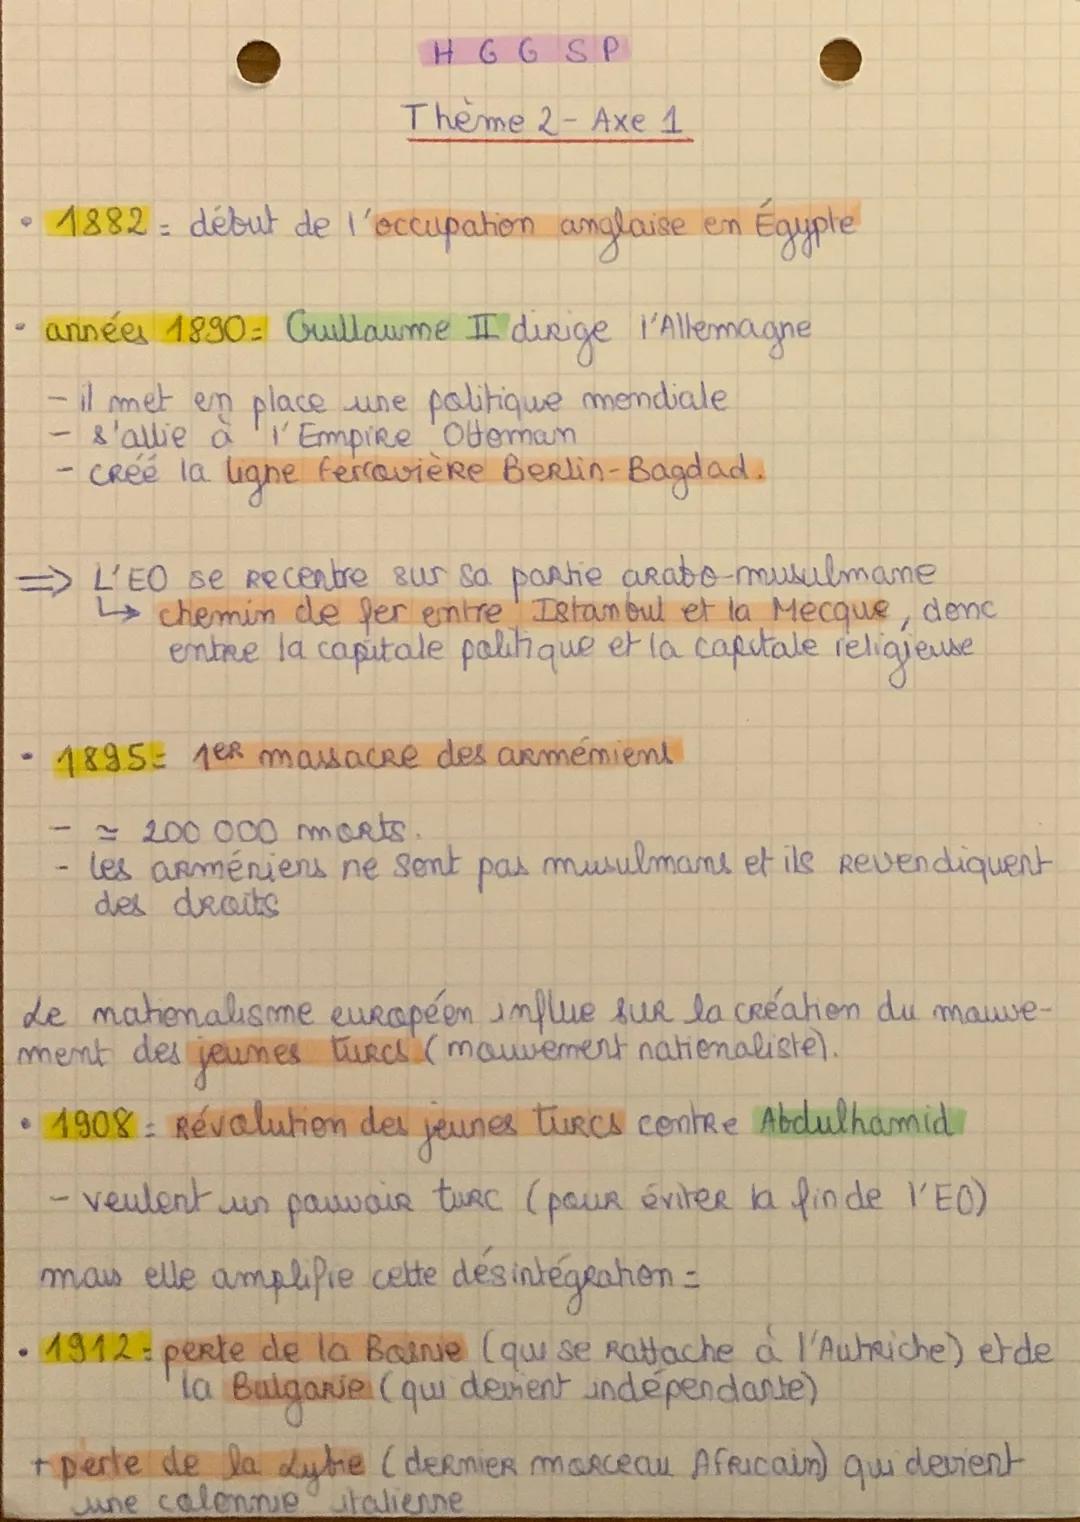 H G G S P
Thème 2 - Axe 1
• 1882 = début de l'occupation anglaise en Égypte
• années 1890 = Guillaume II dirige l'Allemagne
- il met en place une politique mondiale
- s'allie à l'Empire Ottoman
- créé la ligne ferrovière Berlin-Bagdad.
=> L'EO se recentre sur sa partie arabo-musulmane
↳ chemin de fer entre Istanbul et la Mecque, donc
entre la capitale politique et la capitale religieuse
• 1895 = 1er massacre des arméniens
- ≃ 200 000 morts.
- les arméniens ne sont pas musulmans et ils revendiquent
des droits
Le nationalisme européen influe sur la création du mouve-
ment des jeunes turcs (mouvement nationaliste).
• 1908 = Révolution des jeunes turcs contre Abdulhamid
- veulent un pouvoir turc (pour éviter la fin de l'EO)
mais elle amplifie cette désintégration =
• 1912 = perte de la Bosnie (qui se rattache à l'Autriche) et de
la Bulgarie (qui devient indépendante)
+ perte de la Lybie (dernier morceau Africain) qui devient
une colonnie italienne